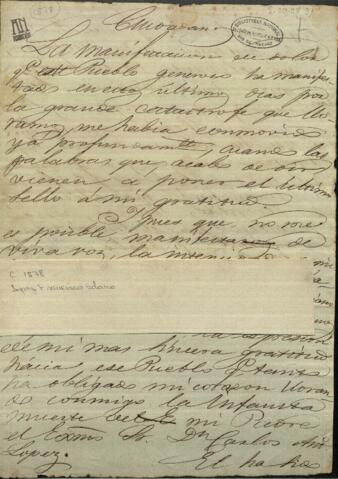 (1878)
Ciudadanos
La manifestacion de dolor
qe este Pueblo generoso ha manifes
tado en estos ultimos dias por
la grande catastrofe que llo
ramos, me habia conmovido
ya profundamte cuando las
palabras que acabo de oir
vienen á poner el ultimo
sello á mi gratitud.
Y pues que no me
es posible manifestar de
viva voz, la
C. 1878
Lopez, Francisco Solano
de mi mas sincera gratitud
hácia ese Pueblo qe tanto
ha obligado mi corazon lloran
do conmigo la infausta
muerte de mi Padre
el Exmo Sr. Dn Carlos Anto
Lopez.
El ha